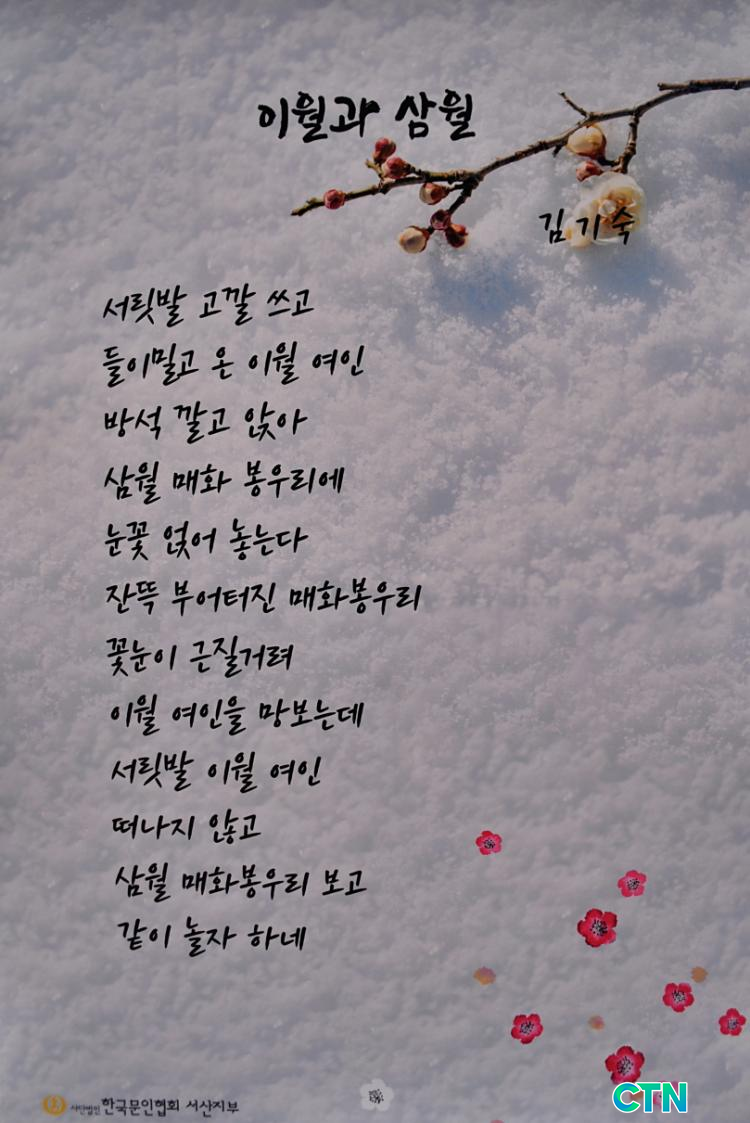 이월과 삼월
김기숙
서릿발 고깔 쓰고
들이밀고 온 이월 여인
방석 깔고 앉아
삼월 매화 봉우리에
눈꽃 얹어 놓는다
잔뜩 부어터진 매화봉우리
꽃눈이 근질거려
이월 여인을 망보는데
서릿발 이월 여인
떠나지 않고
삼월 매화봉우리 보고
같이 놀자 하네
사단법인 한국문인협회 서산지부
CTN